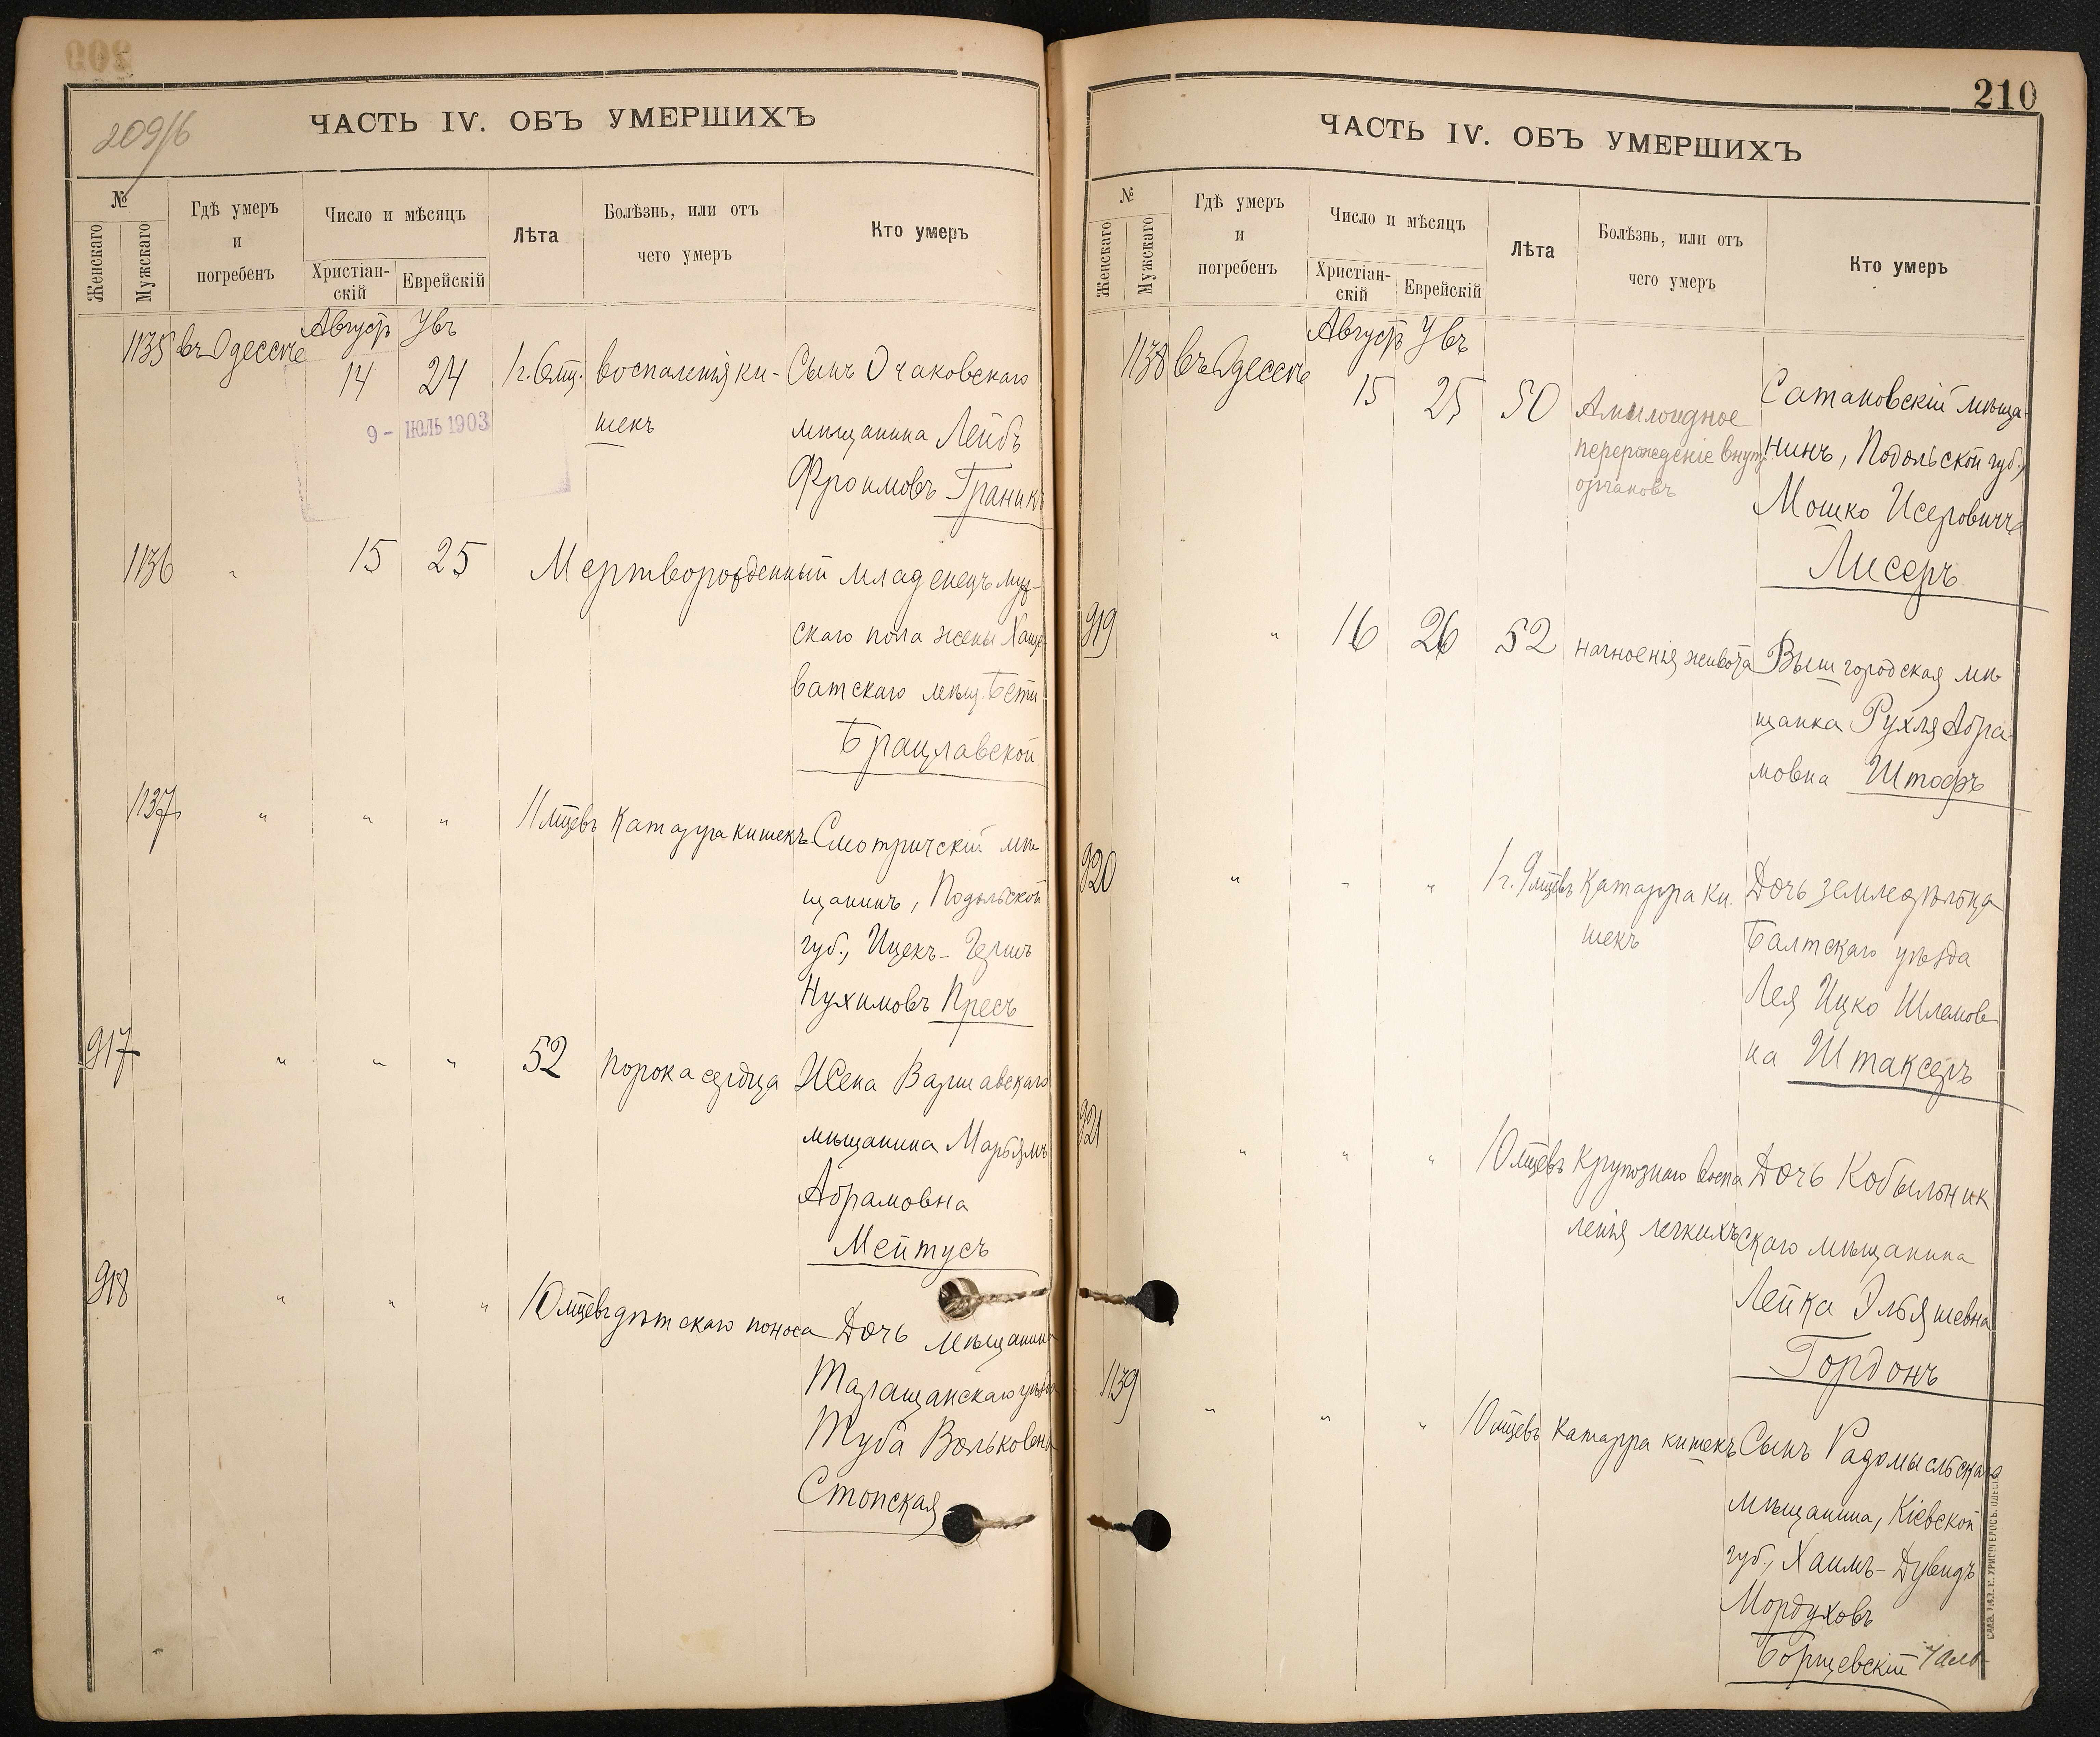 209/6
ЧАСТЬ IV. ОБЪ УМЕРШИХЪ
№
Женскаго
Мужскаго
Гдѣ умеръ
и
погребенъ
Число и мѣсяцъ
Христіан-
скій
Еврейскій
Лѣта
Болѣзнь, или отъ
чего умеръ
Кто умеръ
Августъ Увъ
1135 въ Одессѣ 14 24 1 г. 6 мц. воспаленія ки- Сынъ Очаковскаго
шекъ мѣщанина Лейбъ
9 - ІЮЛЬ 1903
Фроимовъ Граникъ
1136 " 15 25 Мертворожденный младенецъ муж-
скаго пола жены Хаще-
ватскаго мѣщ. Бети
Брацлавской
1137 " " " 11 мцевъ Катарра кишекъ Смотричскій мѣ
щанинъ, Подольской
губ., Ицекъ-Гершъ
Нухимовъ Пресъ
917 " " " 52 порока сердца Жена Варшавскаго
мѣщанина Марьямъ
Абрамовна
Мейтусъ
918 " " " 10 мцевъ дѣтскаго поноса Дочь мѣщанина
Таращанскаго уѣзда
Туба Вольковна
Стопская
210
ЧАСТЬ IV. ОБЪ УМЕРШИХЪ
№
Женскаго
Мужскаго
Гдѣ умеръ
и
погребенъ
Число и мѣсяцъ
Христіан-
скій
Еврейскій
Лѣта
Болѣзнь, или отъ
чего умеръ
Кто умеръ
Августъ Увъ
1138 въ Одессѣ 15 25 50 Амилоидное Сатановскій мѣща-
перерожденіе внутр. нинъ, Подольской губ.,
органовъ Мошко Исеровичъ
Лисеръ
919 " 16 26 52 нагноенія живота Вышгородская мѣ
щанка Рухля Абра-
мовна Штофъ
920 " " " 1 г. 9 мцевъ Катарра ки- Дочь земледѣльца
шекъ Балтскаго уѣзда
Лея Ицко Шлемов-
на Штаксеръ
921 " " " 10 мцевъ Крупознаго воспа Дочь Кобыльник
ленія легкихъ скаго мѣщанина
Лейка Эльяшевна
Гордонъ
1139 " " " 10 мцевъ Катарра кишекъ Сынъ Радомысльскаго
мѣщанина, Кіевской
губ., Хаимъ-Дувидъ
Мордуховъ
Борщевскій